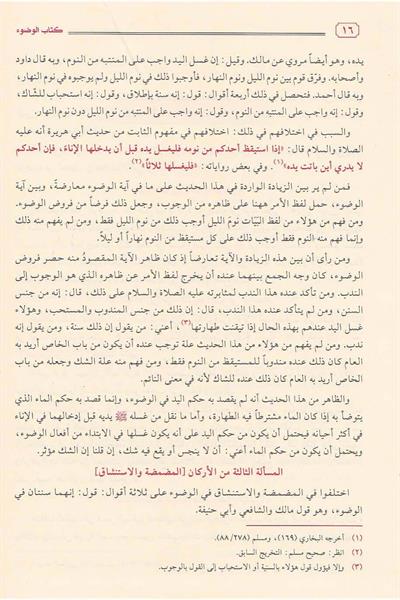 ١٦
كتاب الوضوء
يده، وهو أيضاً مروي عن مالك. وقيل: إن غسل اليد واجب على المنتبه من النوم، وبه قال داود
وأصحابه. وفرّق قوم بين نوم الليل ونوم النهار، فأوجبوا ذلك في نوم الليل ولم يوجبوه في نوم النهار،
وبه قال أحمد. فتحصل في ذلك أربعة أقوال: قول: إنه سنة بإطلاق، وقول: إنه استحباب للشاك،
وقول: إنه واجب على المنتبه من النوم، وقول: إنه واجب على المنتبه من نوم الليل دون نوم النهار.
والسبب في اختلافهم في ذلك: اختلافهم في مفهوم الثابت من حديث أبي هريرة أنه عليه
الصلاة والسلام قال: «إذا استيقظ أحدكم من نومه فليغسل يده قبل أن يدخلها الإناء، فإن أحدكم
لا يدري أين باتت يده»(١). وفي بعض رواياته: «فليغسلها ثلاثاً»(٢).
فمن لم ير بين الزيادة الواردة في هذا الحديث على ما في آية الوضوء معارضة، وبين آية
الوضوء، حمل لفظ الأمر ههنا على ظاهره من الوجوب، وجعل ذلك فرضاً من فروض الوضوء.
ومن فهم من هؤلاء من لفظ البيّات نوم الليل أوجب ذلك من نوم الليل فقط، ومن لم يفهم منه ذلك
وإنما فهم منه النوم فقط أوجب ذلك على كل مستيقظ من النوم نهاراً أو ليلاً.
ومن رأى أن بين هذه الزيادة والآية تعارضاً إذ كان ظاهر الآية المقصودُ منه حصر فروض
الوضوء، كان وجه الجمع بينهما عنده أن يخرج لفظ الأمر عن ظاهره الذي هو الوجوب إلى
الندب. ومن تأكد عنده هذا الندب لمثابرته عليه الصلاة والسلام على ذلك، قال: إنه من جنس
السنن، ومن لم يتأكد عنده هذا الندب، قال: إن ذلك من جنس المندوب والمستحب، وهؤلاء
غسل اليد عندهم بهذه الحال إذا تيقنت طهارتها(٣)، أعني: من يقول إن ذلك سنة، ومن يقول إنه
ندب. ومن لم يفهم من هؤلاء من هذا الحديث علة توجب عنده أن يكون من باب الخاص أريد به
العام كان ذلك عنده مندوباً للمستيقظ من النوم فقط، ومن فهم منه علة الشك وجعله من باب
الخاص أريد به العام كان ذلك عنده للشاك لأنه في معنى النائم.
والظاهر من هذا الحديث أنه لم يقصد به حكم اليد في الوضوء، وإنما قصد به حكم الماء الذي
يتوضأ به إذا كان الماء مشترطاً فيه الطهارة، وأما ما نقل من غسله ﷺ يديه قبل إدخالهما في الإناء
في أكثر أحيانه فيحتمل أن يكون من حكم اليد على أنه يكون غسلها في الابتداء من أفعال الوضوء،
ويحتمل أن يكون من حكم الماء أعني: أن لا ينجس أو يقع فيه شك، إن قلنا إن الشك مؤثر.
المسألة الثالثة من الأركان [المضمضة والاستنشاق]
اختلفوا في المضمضة والاستنشاق في الوضوء على ثلاثة أقوال: قول: إنهما سنتان في
الوضوء، وهو قول مالك والشافعي وأبي حنيفة.
(١) أخرجه البخاري (١٦٩)، ومسلم (٨٨/٢٧٨).
(٢) انظر: صحيح مسلم: التخريج السابق.
(٣) وإلا فيؤول قول هؤلاء بالسنية أو الاستحباب إلى القول بالوجوب.